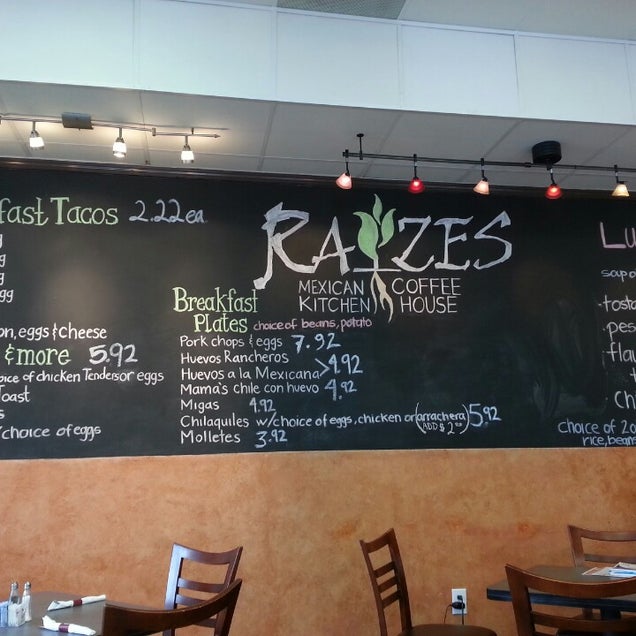 fast Tacos 2.22 ea
egg
on, eggs & cheese
& more 5.92
choice of chicken Tenders or eggs
Toast
/choice of eggs
RAIZES
MEXICAN KITCHEN
COFFEE HOUSE
Breakfast
Plates choice of beans, potato
Pork chops & eggs 7.92
Huevos Rancheros
Huevos a la Mexicana >4.92
Mama's chile con huevo 4.92
Migas 4.92
Chilaquiles w/choice of eggs, chicken or (arrachera) 5.92
ADD $2
Molletes 3.92
Lu
soup o
tosta
pes
flau
Ch
choice of 2 o
rice, beans